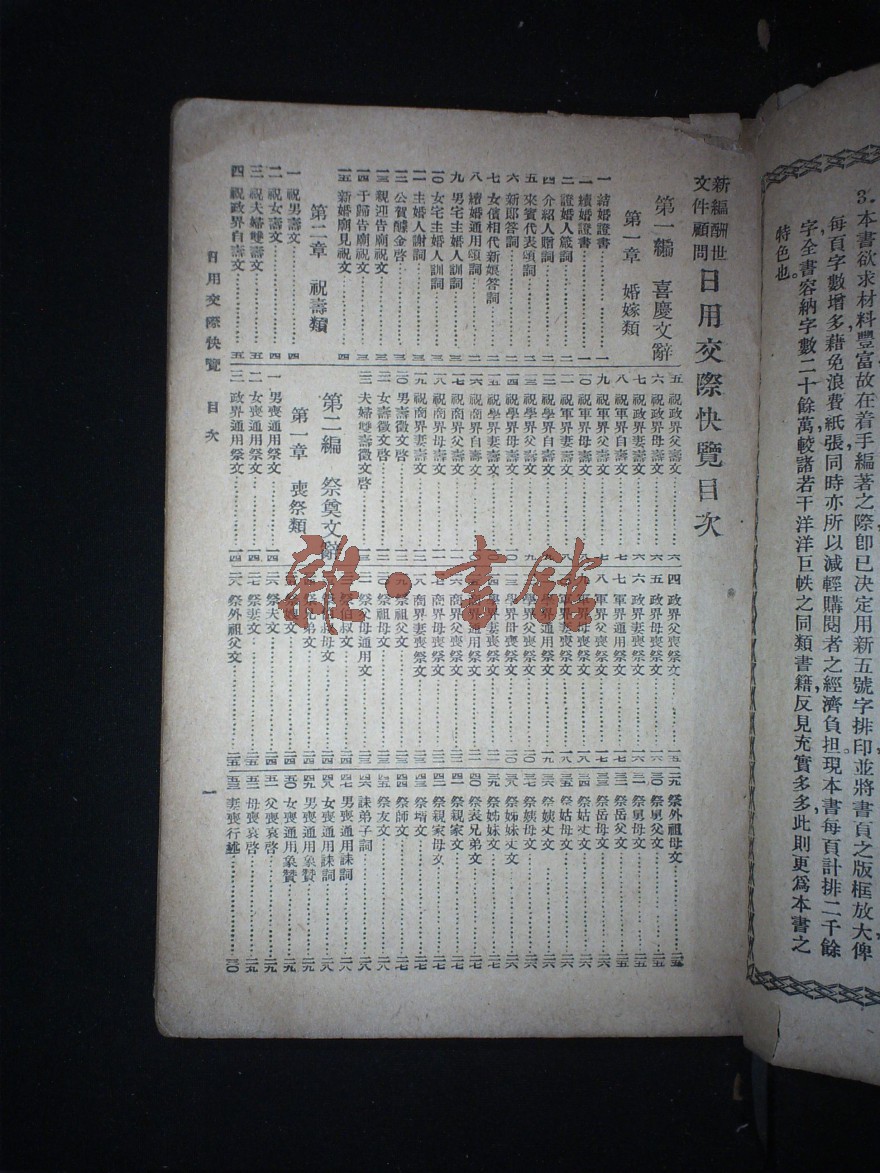 3.本書欲求材料豐富故在着手編著之際卽已決定用新五號字排印並將書頁之版框放大俾
每頁字數增多藉免浪費紙張,同時亦所以減輕購閱者之經濟負担。現本書每頁計排二千餘
字,全書容納字數二十餘萬,較諸若干洋洋巨帙之同類書籍,反見充實多多,此則更爲本書之
特色也。
新編酬世
文件顧問
日用交際快覽目次
第一編 喜慶文辭
第一章 婚嫁類
一 結婚證書…一
二 續婚證書…一
三 證婚人箴詞…一
四 介紹人贈詞…二
五 來賓代表頌詞…二
六 新郎答詞…二
七 女儐相代新娘答詞…二
八 續婚通用頌詞…二
九 男宅主婚人訓詞…三
一〇 女宅主婚人訓詞…三
一一 主婚人謝詞…三
一二 公賀醵金啓…三
一三 親迎告廟祝文…三
一四 于歸告廟祝文…三
一五 新婚廟見祝文…四
第二章 祝壽類
一 祝男壽文…四
二 祝女壽文…四
三 祝夫婦雙壽文…五
四 祝政界自壽文…五
五 祝政界父壽文…六
六 祝政界母壽文…六
七 祝政界妻壽文…六
八 祝軍界自壽文…七
九 祝軍界父壽文…七
一〇 祝軍界母壽文
一一 祝軍界妻壽文
一二 祝學界自壽文
一三 祝學界父壽文
一四 祝學界母壽文
一五 祝學界妻壽文
一六 祝商界自壽文
一七 祝商界父壽文
一八 祝商界母壽文
一九 祝商界妻壽文
二〇 男壽徵文啓
二一 女壽徵文啓
二二 夫婦雙壽徵文啓
第二編 祭奠文辭
第一章 喪祭類
一 男喪通用祭文…一四
二 女喪通用祭文…一四
三 政界通用祭文…一四
四 政界父喪祭文…一五
五 政界母喪祭文
六 政界妻喪祭文
七 軍界通用祭文
八 軍界父喪祭文
九 軍界母喪祭文
一〇 軍界妻喪祭文
一一 學界通用祭文
一二 學界父喪祭文
一三 學界母喪祭文
一四 學界妻喪祭文
一五 商界通用祭文
一六 商界父喪祭文
一七 商界母喪祭文
一八 商界妻喪祭文
一九 祭祖父文
二〇 祭祖母文
二一 祭父母通用文
二二 祭伯叔文
二三 祭伯叔母文
二四 祭兄弟文
二五 祭嫂文
二六 祭夫文
二七 祭妻文
二八 祭外祖父文
二九 祭外祖母文…二五
三〇 祭舅父文…二五
三一 祭舅母文…二五
三二 祭岳父文…二五
三三 祭岳母文…二六
三四 祭姑丈文…二六
三五 祭姑母文…二六
三六 祭姨丈文…二六
三七 祭姨母文…二六
三八 祭姊妹丈文…二六
三九 祭姊妹文…二七
四〇 祭表兄弟文…二七
四一 祭親家文…二七
四二 祭親家母文…二七
四三 祭壻文…二七
四四 祭師文…二七
四五 祭友文…二八
四六 誄弟子詞…二八
四七 男喪通用誄詞…二八
四八 女喪通用誄詞…二八
四九 男喪通用象贊…二九
五〇 女喪通用象贊…二九
五一 父喪哀啓…二九
五二 母喪哀啓…二九
五三 妻喪行述…三〇
日用交際快覽 目次
一
雜·書館